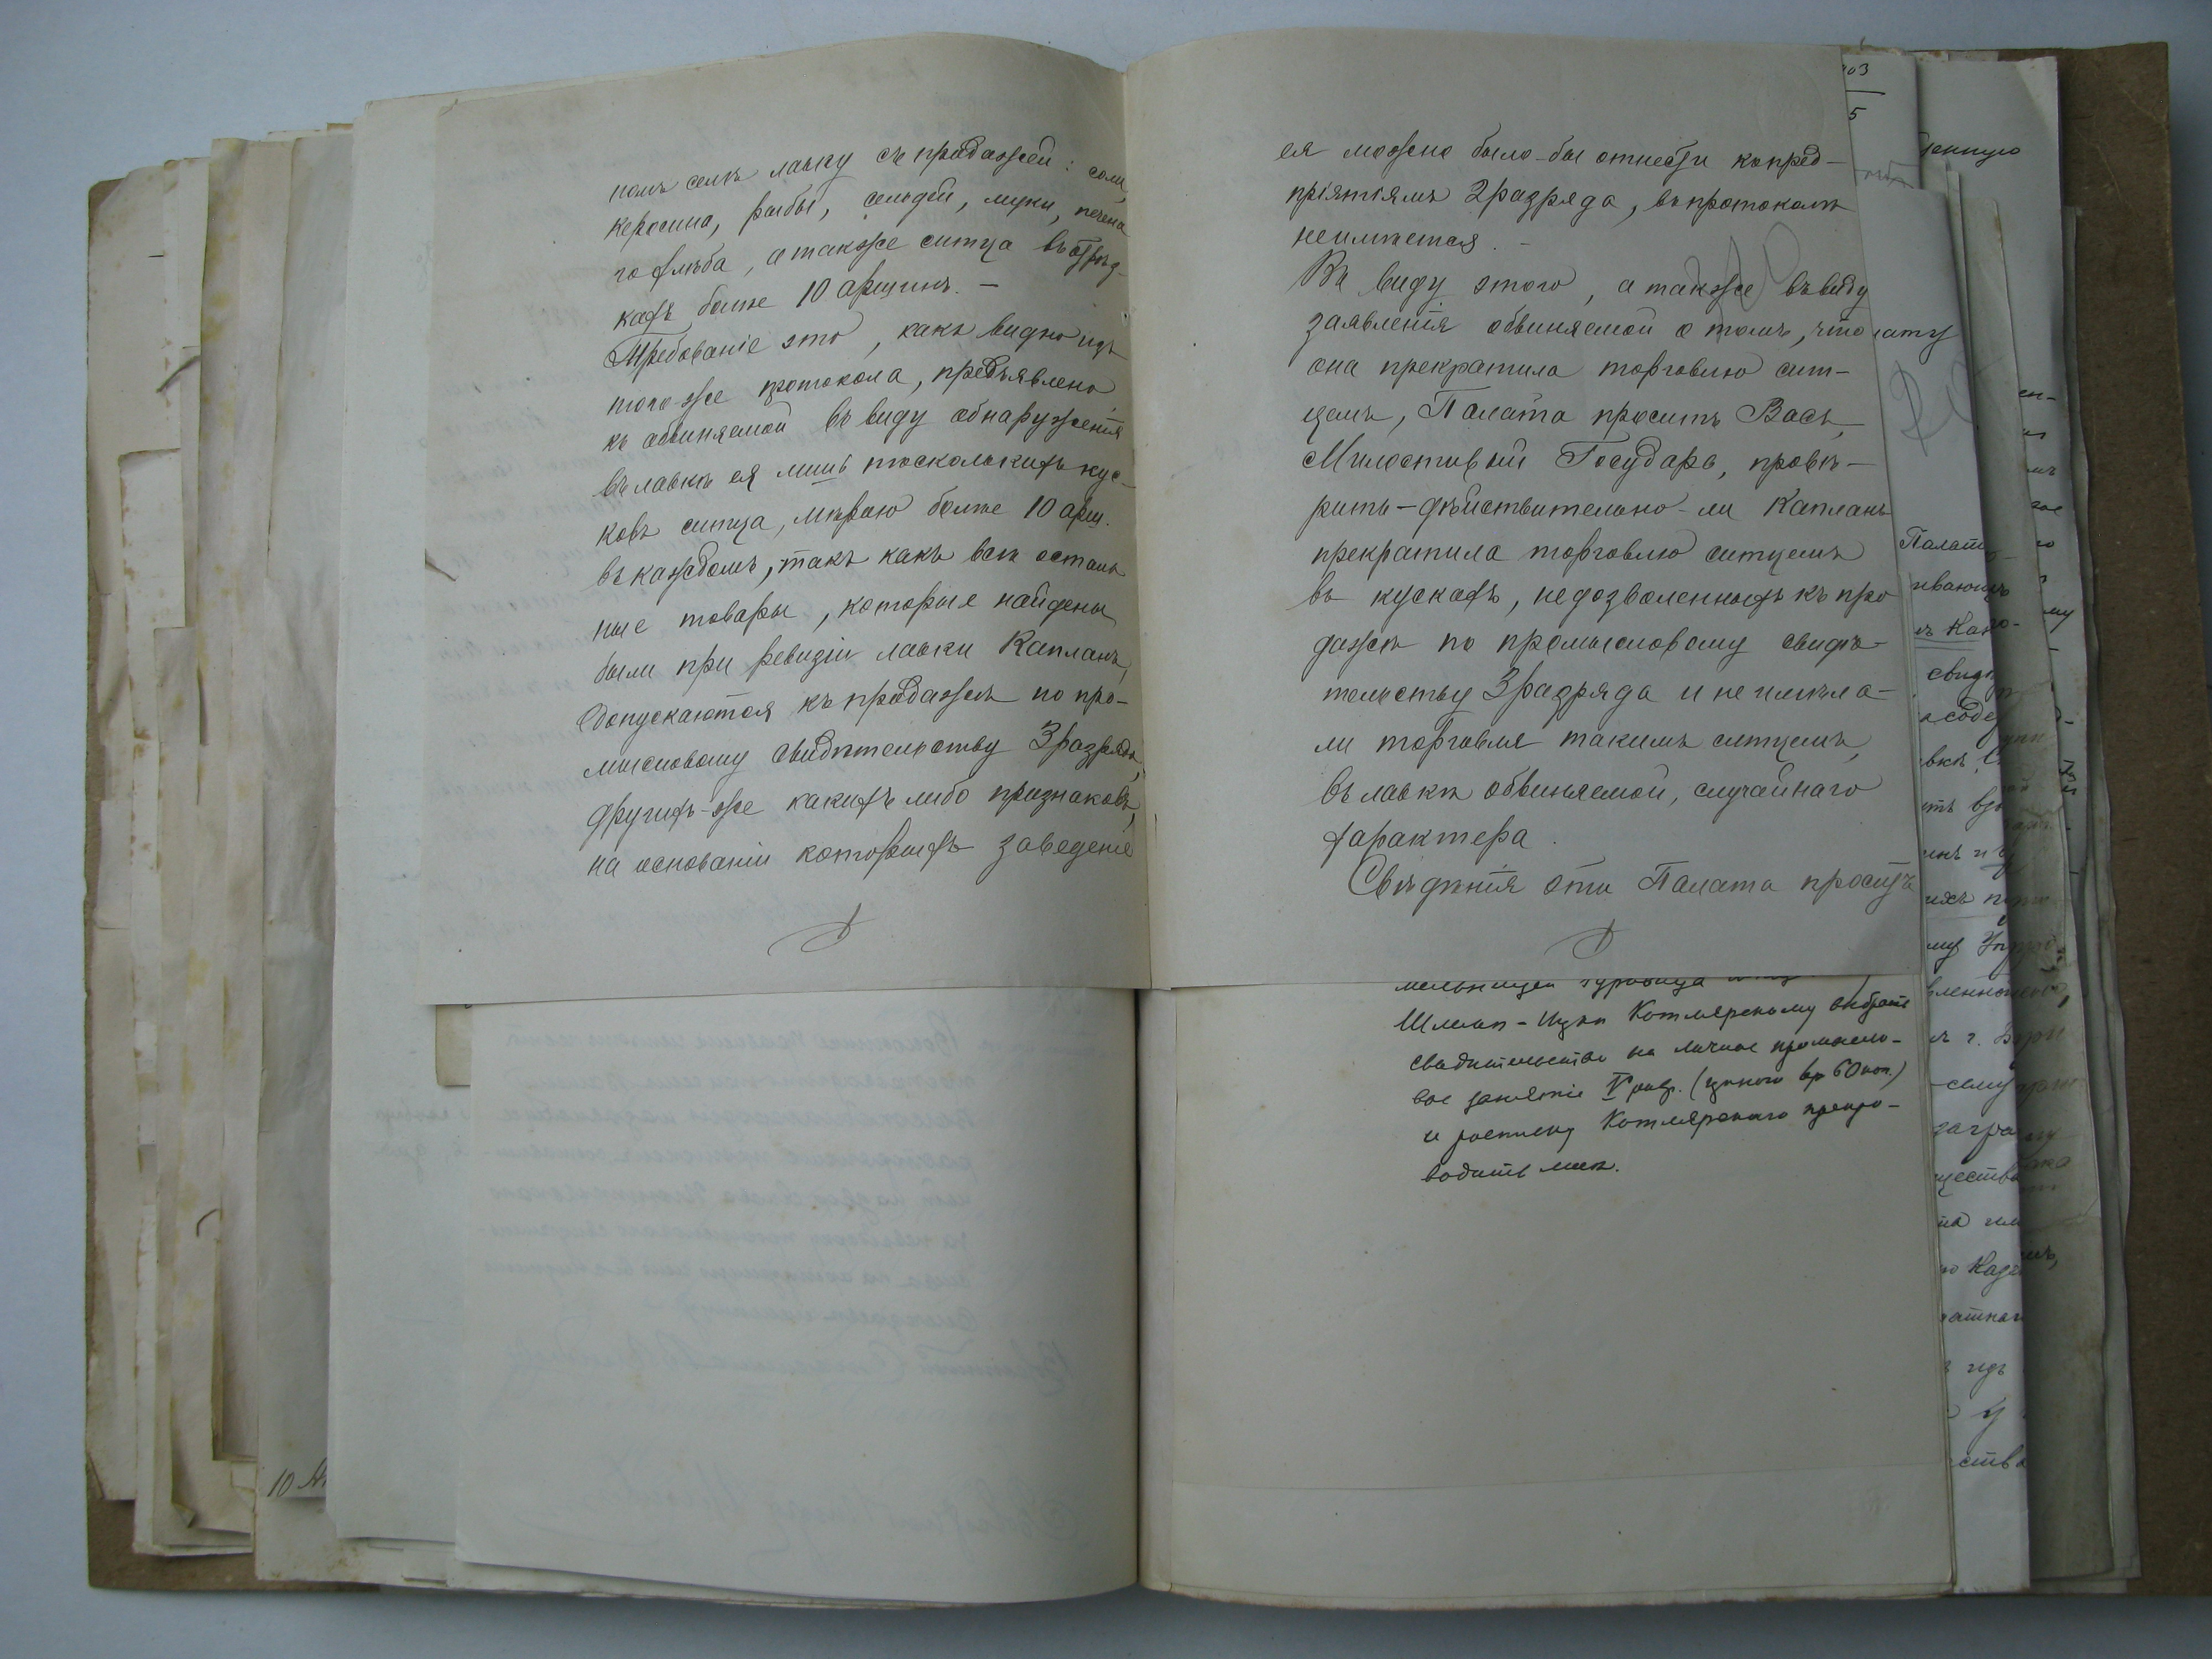 номъ селѣ лавку съ продажей: соли,
керосина, рыбы, сельдей, муки, печена
го хлѣба, а также ситца въ отрѣз-
кахъ болѣе 10 аршинъ. —
Требованіе это, какъ видно изъ
того-же протокола, предъявлено
къ обвиняемой въ виду обнаруженія
въ лавкѣ ея лишь нѣсколькихъ кус-
ковъ ситца, мѣрою болѣе 10 арш.
въ каждомъ, такъ какъ всѣ осталь
ные товары, которые найдены
были при ревизіи лавки Капланъ,
допускаются къ продажѣ по про-
мысловому свидѣтельству 3 разряда,
другихъ-же какихъ либо признаковъ,
на основаніи которыхъ заведеніе
ея можно было-бы отнести къ пред-
пріятіямъ 2 разряда, въ протоколѣ
не имѣется. —
Въ виду этого, а также въ виду
заявленія обвиняемой о томъ, что
она прекратила торговлю сит-
цемъ, Палата проситъ Васъ,
Милостивый Государь, провѣ-
рить - дѣйствительно-ли Капланъ
прекратила торговлю ситцемъ
въ кускахъ, недозволенныхъ къ про
дажѣ по промысловому свидѣ-
тельству 3 разряда и не имѣла-
ли торговля такимъ ситцемъ,
въ лавкѣ обвиняемой, случайнаго
характера.
Свѣдѣнія эти Палата проситъ
Шлема-Ицка Котлярскому выбрать
свидѣтельство на личное промысло-
вое занятіе V разр. (цѣною въ 60 коп.)
и росписку Котлярскаго препро-
водить мнѣ.
03
5
Палат
сви
10